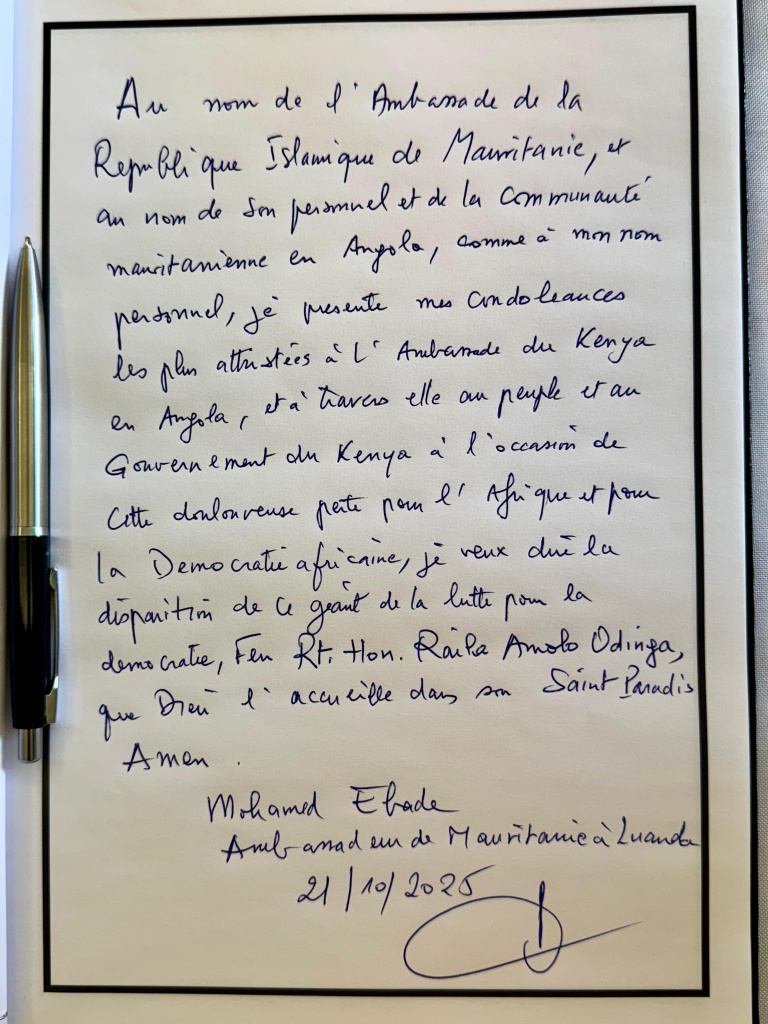 Au nom de l'Ambassade de la
Republique Islamique de Mauritanie, et
au nom de son personnel et de la Communauté
mauritanienne en Angola, comme à mon nom
personnel, je presente mes condoleances
les plus attristées à l'Ambassade du Kenya
en Angola, et à travers elle au peuple et au
Gouvernement du Kenya à l'occasion de
Cette douloureuse perte pour l'Afrique et pour
la Democratie africaine, je veux dire la
disparition de ce geant de la lutte pour la
democratie, Feu Rt. Hon. Raila Amolo Odinga,
que Dieu l'accueille dans son Saint Paradis
Amen.
Mohamed Ebade
Ambassadeur de Mauritanie à Luanda
21/10/2025